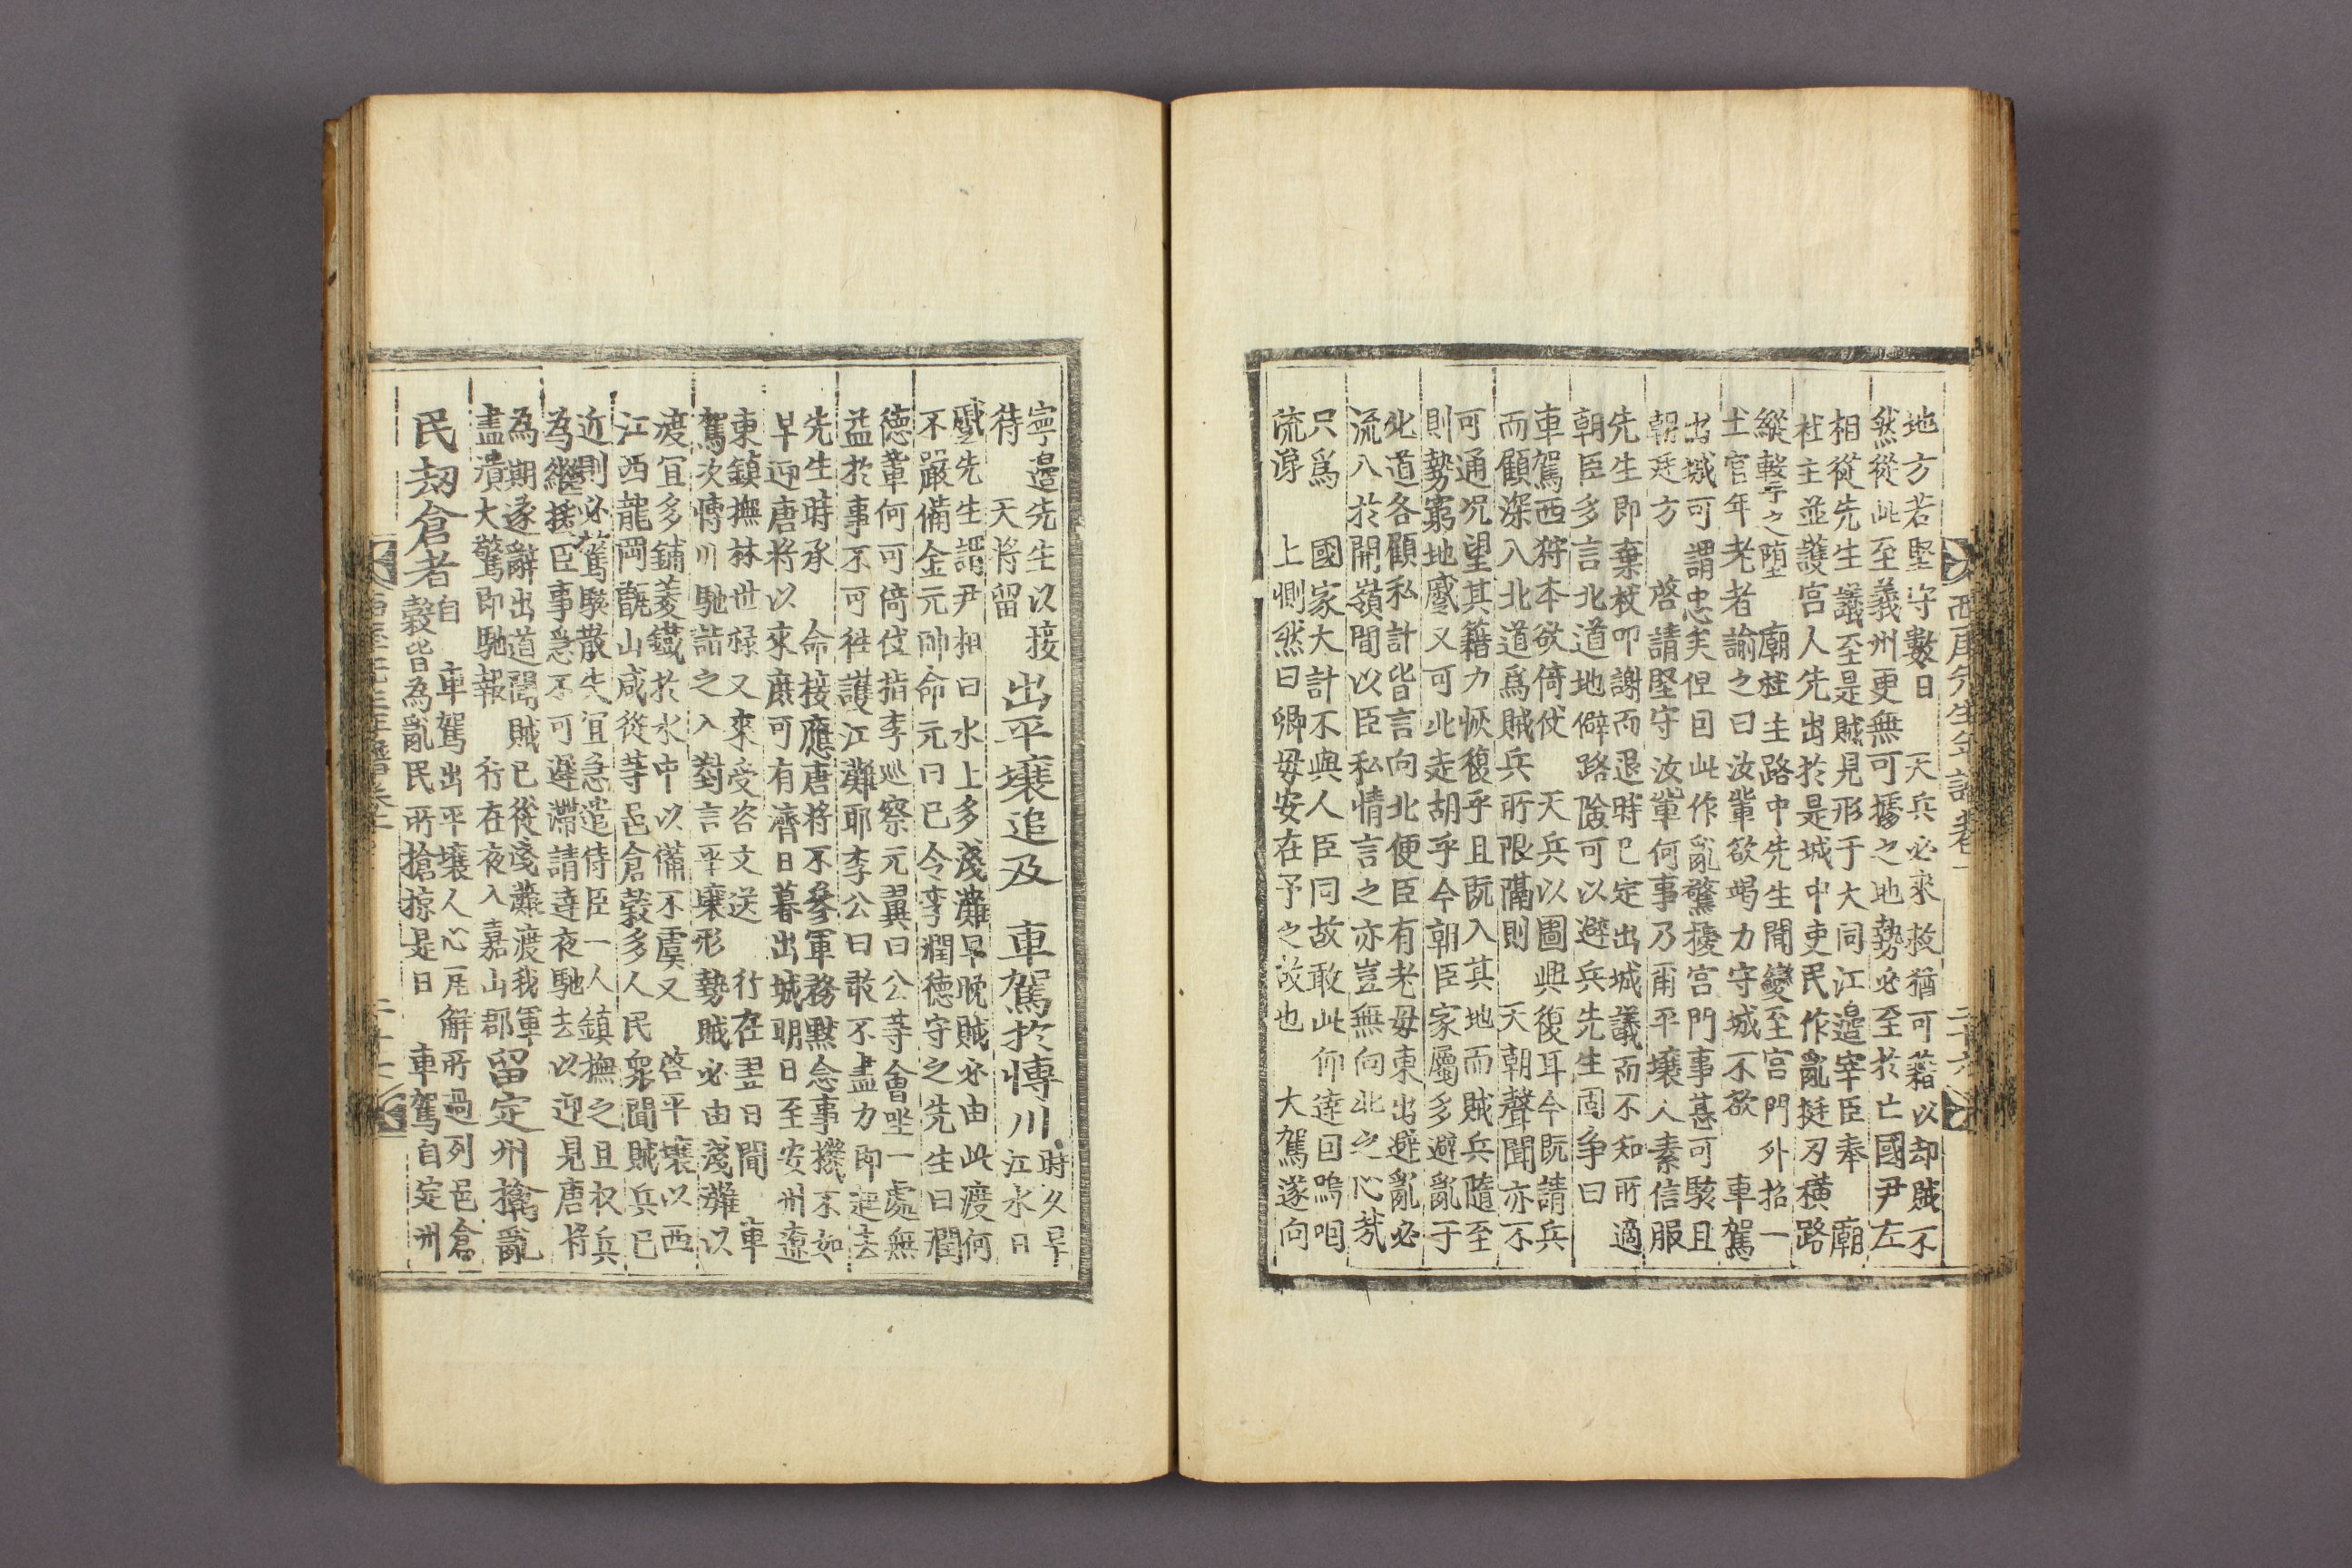 西厓先生年譜卷一
二十六
地方若堅守數日 天兵必來救猶可藉以却賊不
然從此至義州更無可據之地勢必至於亡國尹左
相從先生議至是賊見形于大同江邊宰臣奉 廟
社主並護宮人先出於是城中吏民作亂挺刃橫路
縱擊之墮 廟社主路中先生聞變至宮門外招一
土官年老者諭之曰汝輩欲竭力守城不欲 車駕
出城可謂忠矣但因此作亂驚擾宮門事甚可駭且
朝廷方 啓請堅守汝輩何事乃爾平壤人素信服
先生即棄杖叩謝而退時已定出城議而不知所適
朝臣多言北道地僻路險可以避兵先生固爭曰
車駕西狩本欲倚仗 天兵以圖興復耳今旣請兵
而顧深入北道爲賊兵所限隔則 天朝聲聞亦不
可通况望其籍力恢復乎且旣入其地而賊兵隨至
則勢窮地蹙又可北走胡乎今朝臣家屬多避亂于
北道各顧私計皆言向北便臣有老母東出避亂必
流入於關嶺間以臣私情言之亦豈無向北之心哉
只爲 國家大計不與人臣同故敢此仰達因嗚咽
流涕 上惻然曰卿母安在予之故也 大駕遂向
寧邊先生以接
待 天將留
出平壤追及 車駕於博川
時久旱
江水日
蹙先生謂尹相曰水上多淺灘早晚賊必由此渡何
不嚴備金元帥命元曰已令李潤德守之先生曰潤
德輩何可倚仗指李巡察元翼曰公等會坐一處無
益於事不可往護江灘耶李公曰敢不盡力即起去
先生時承 命接應唐將不參軍務默念事機不如
早迎唐將以來庶可有濟日暮出城明日至安州遼
東鎭撫林世祿又來受咨文送 行在翌日聞 車
駕次博川馳詣之入對言平壤形勢賊必由淺灘以
渡宜多鋪菱鐵於水中以備不虞又 啓平壤以西
江西龍岡甑山咸從等邑倉穀多人民衆聞賊兵已
近則必驚駭散失宜急遣侍臣一人鎮撫之且收兵
為繼援臣事急不可遲滯請達夜馳去以迎見唐將
為期遂辭出道聞賊已從淺灘渡我軍
盡潰大驚即馳報 行在夜入嘉山郡
留定州擒亂
民刼倉者
自 車駕出平壤人心瓦解所過列邑倉
穀皆為亂民所搶掠是日 車駕自定州
西厓先生年譜卷一
二十七